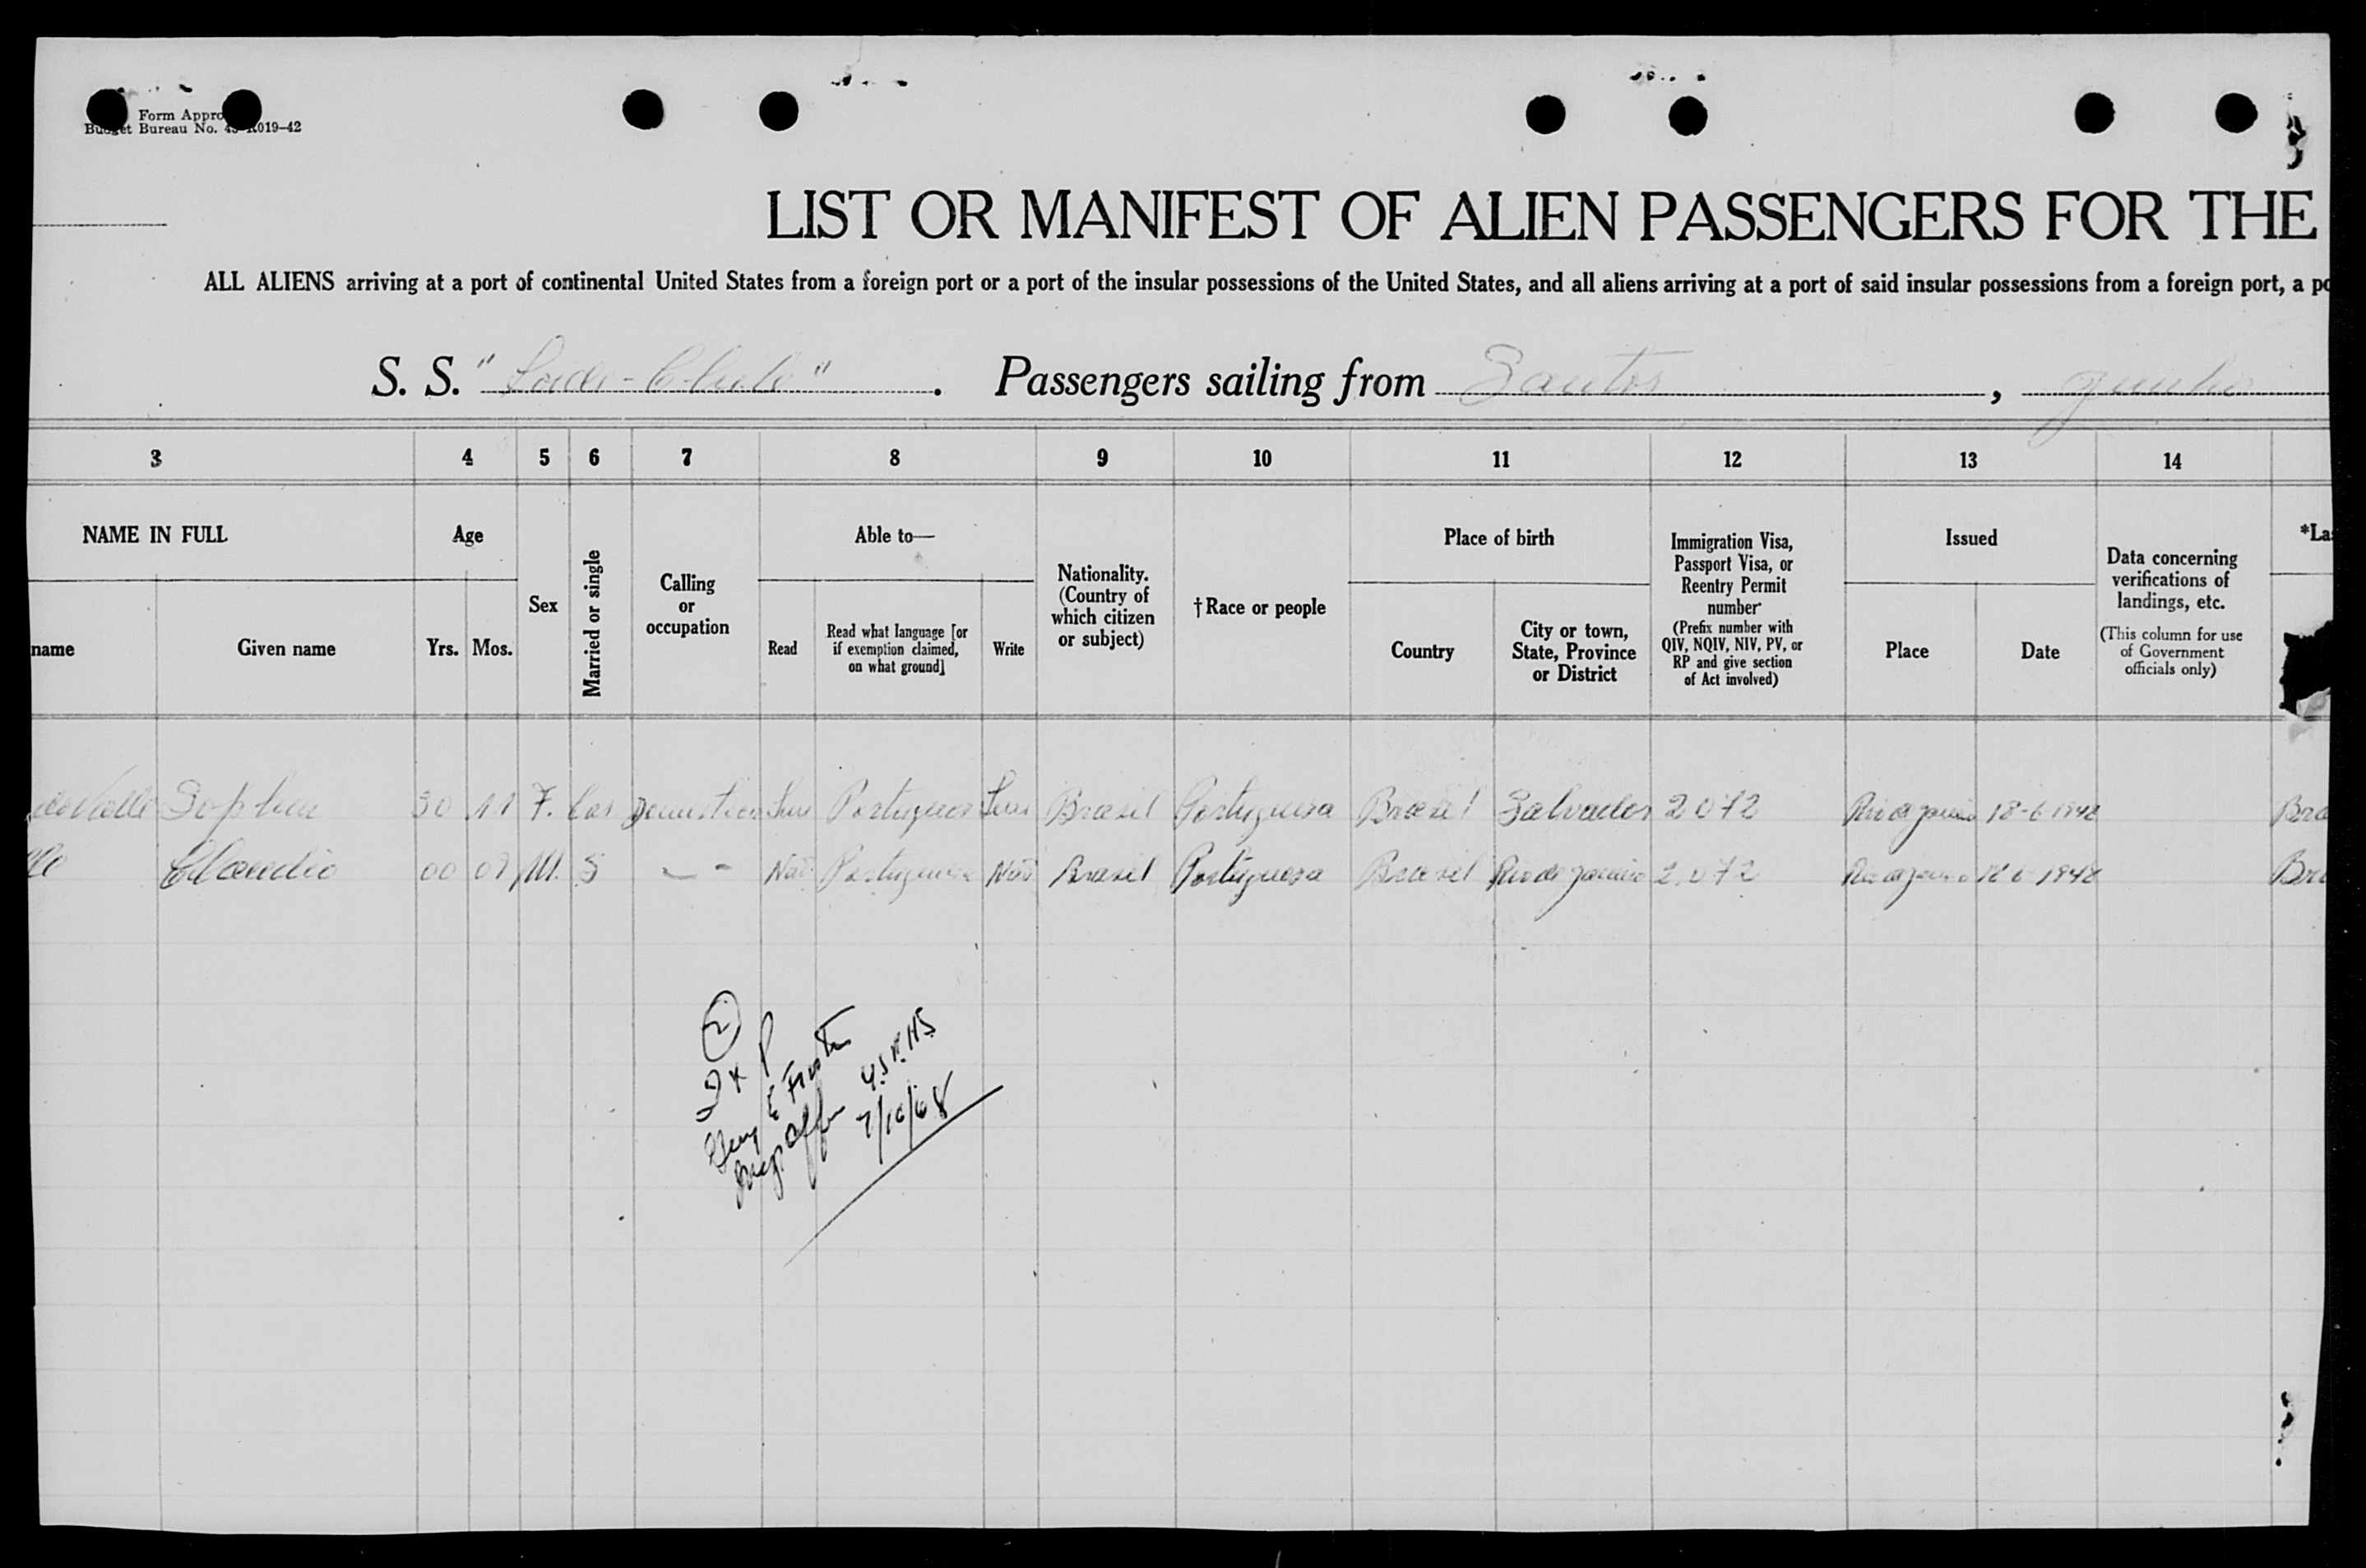 Form Appro
Budget Bureau No. 43-R019-42
LIST OR MANIFEST OF ALIEN PASSENGERS FOR THE
ALL ALIENS arriving at a port of continental United States from a foreign port or a port of the insular possessions of the United States, and all aliens arriving at a port of said insular possessions from a foreign port, a po
S. S. " " . Passengers sailing from Santos , Junho
3 4 5 6 7 8 9 10 11 12 13 14
NAME IN FULL Age Sex Married or single Calling or occupation Able to— Nationality. (Country of which citizen or subject) †Race or people Place of birth Immigration Visa, Passport Visa, or Reentry Permit number (Prefix number with QIV, NQIV, NIV, PV, or RP and give section of Act involved) Issued Data concerning verifications of landings, etc. (This column for use of Government officials only) *Las
name Given name Yrs. Mos. Read Read what language [or if exemption claimed, on what ground] Write Country City or town, State, Province or District Place Date
Sophia 30 11 F. Cas Domestica Sim Portuguesa Sim Brasil Portuguesa Brasil Salvador 2072 Rio de Janeiro 18-6-1948 Bra
Claudio 00 09 M. S - - Não Portuguesa Não Brasil Portuguesa Brasil Rio de Janeiro 2.072 Rio de Janeiro 18-6-1948 Bra
2